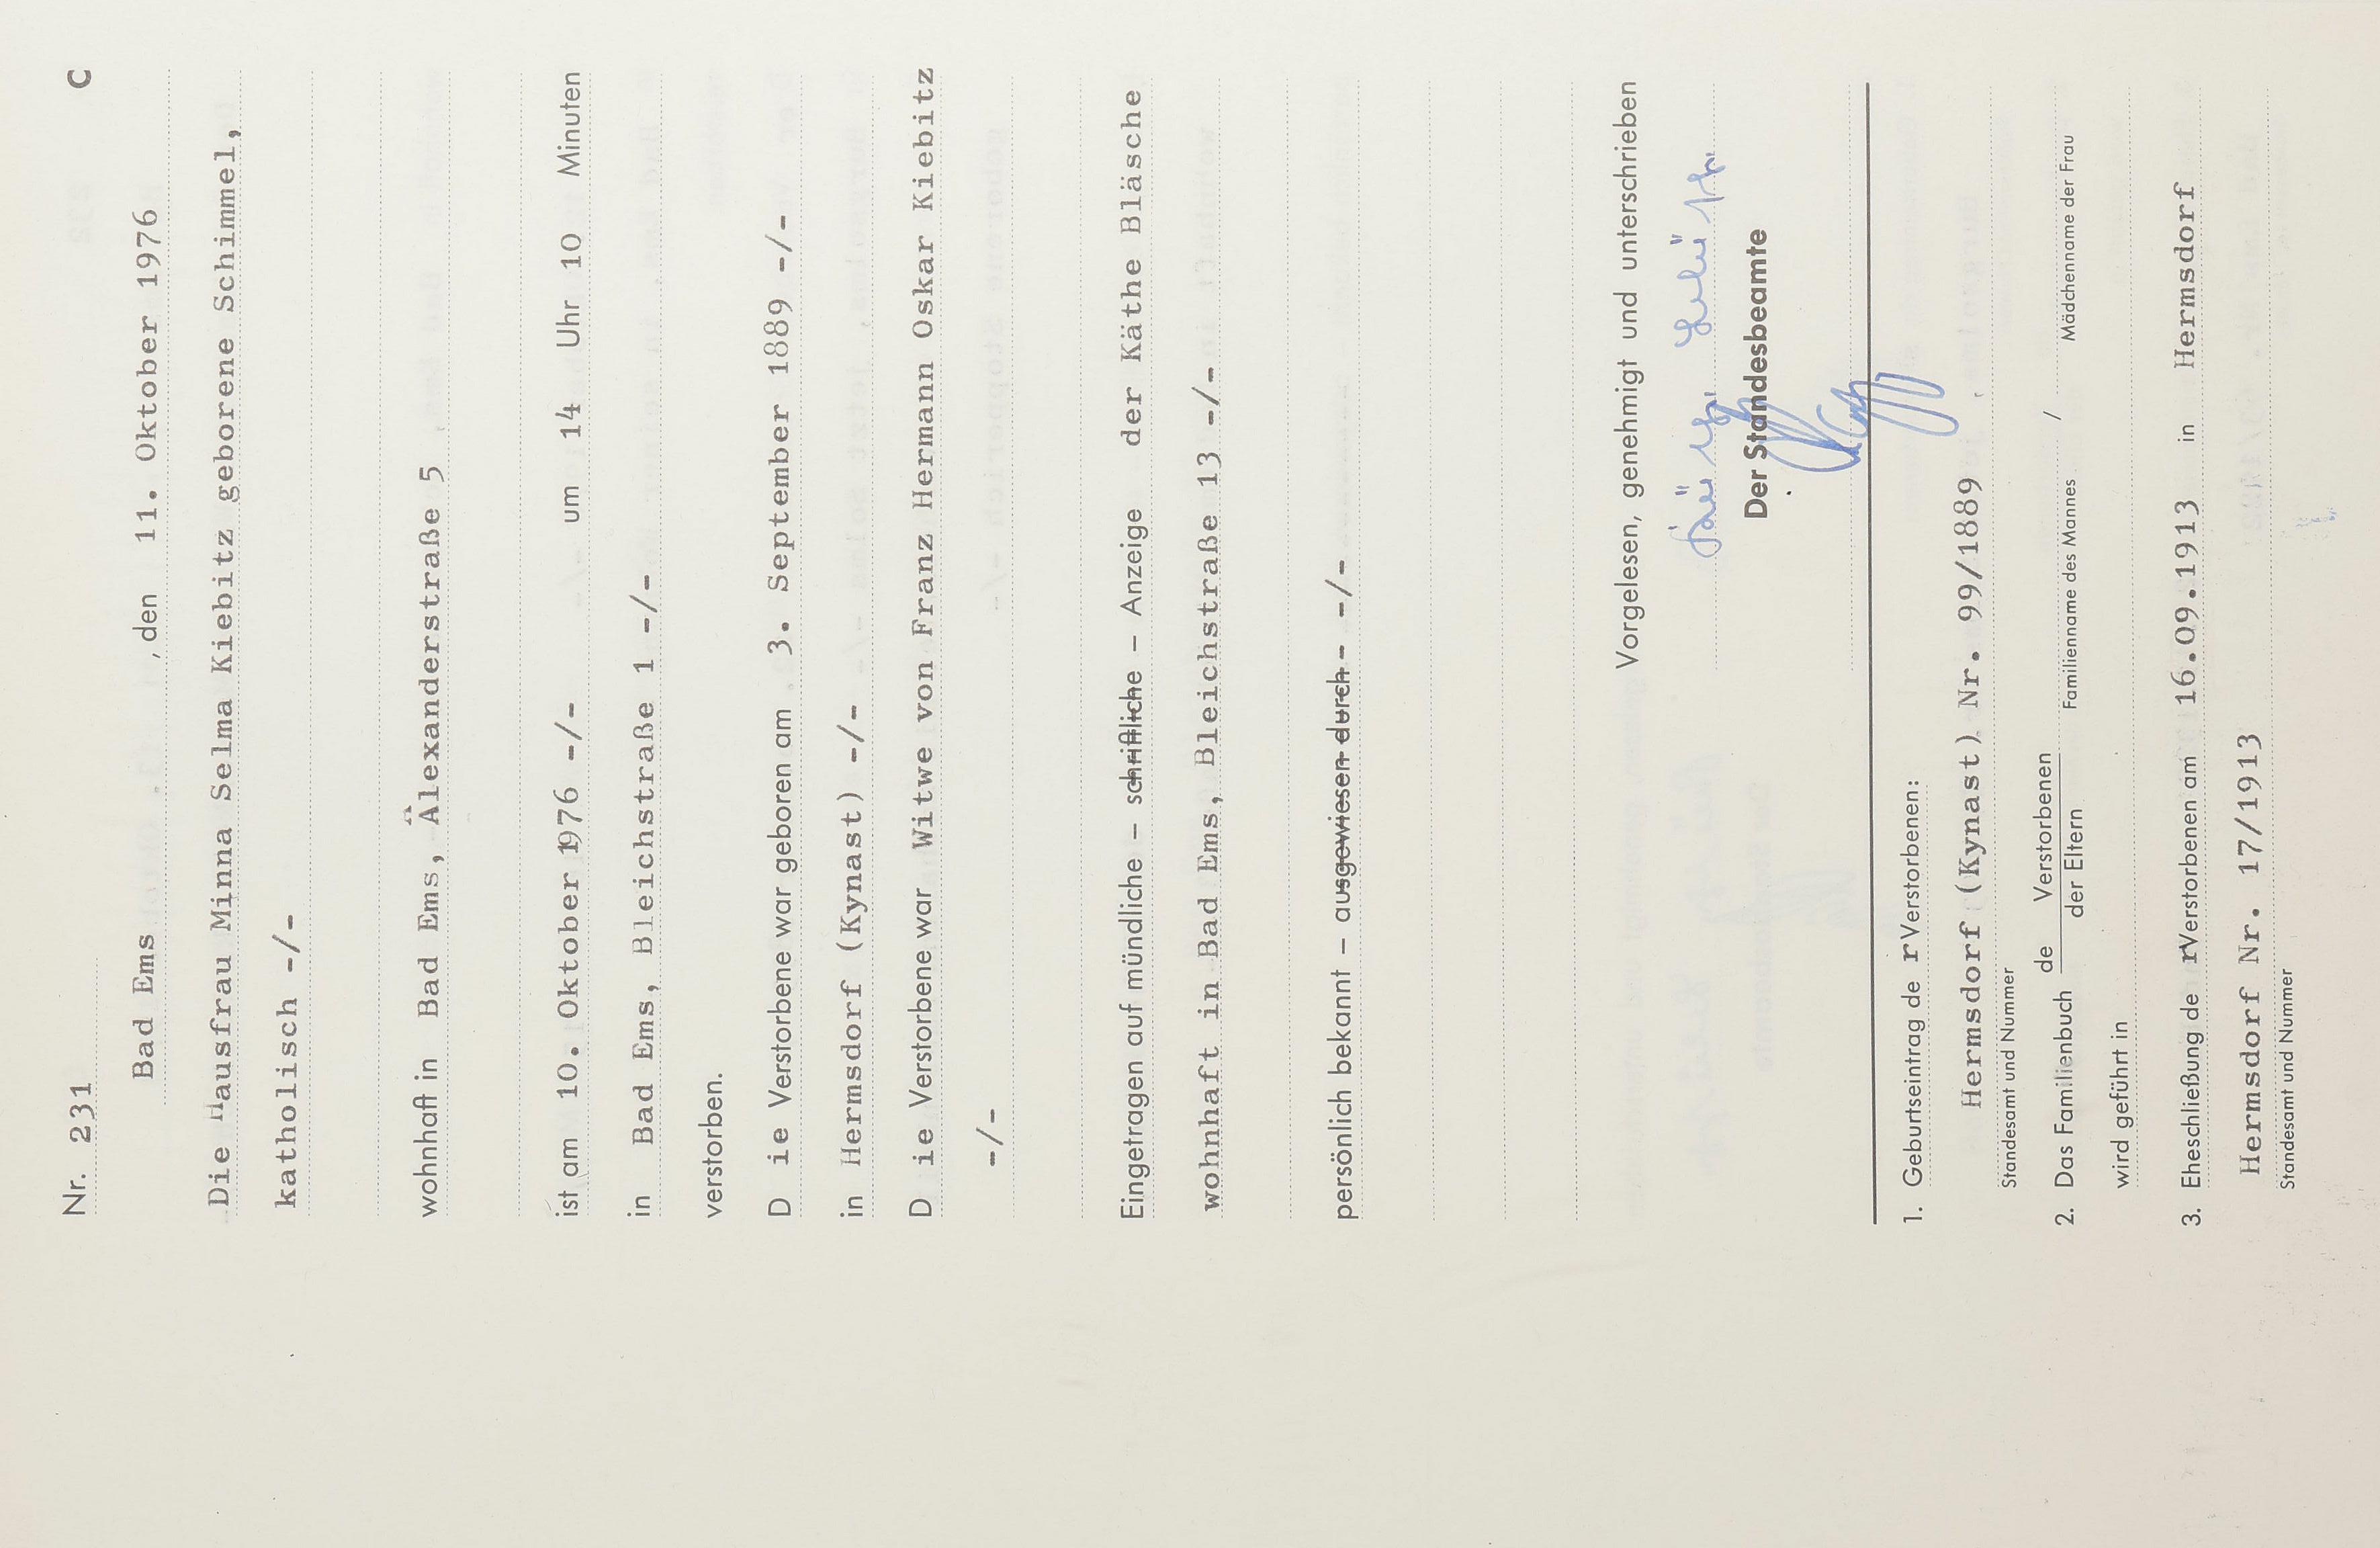 Nr. 231 C
Bad Ems , den 11. Oktober 1976
Die Hausfrau Minna Selma Kiebitz geborene Schimmel,
katholisch -/-
wohnhaft in Bad Ems, Alexanderstraße 5
ist am 10. Oktober 1976 -/- um 14 Uhr 10 Minuten
in Bad Ems, Bleichstraße 1 -/-
verstorben.
D ie Verstorbene war geboren am 3. September 1889 -/-
in Hermsdorf (Kynast) -/-
D ie Verstorbene war Witwe von Franz Hermann Oskar Kiebitz
-/-
Eingetragen auf mündliche – schriftliche – Anzeige der Käthe Bläsche
wohnhaft in Bad Ems, Bleichstraße 13 -/-
persönlich bekannt – ausgewiesen durch - -/-
Vorgelesen, genehmigt und unterschrieben
Der Standesbeamte
1. Geburtseintrag de r Verstorbenen:
Hermsdorf (Kynast) Nr. 99/1889
Standesamt und Nummer
2. Das Familienbuch de Verstorbenen / der Eltern Familienname des Mannes / Mädchenname der Frau
wird geführt in
3. Eheschließung de r Verstorbenen am 16.09.1913 in Hermsdorf
Hermsdorf Nr. 17/1913
Standesamt und Nummer